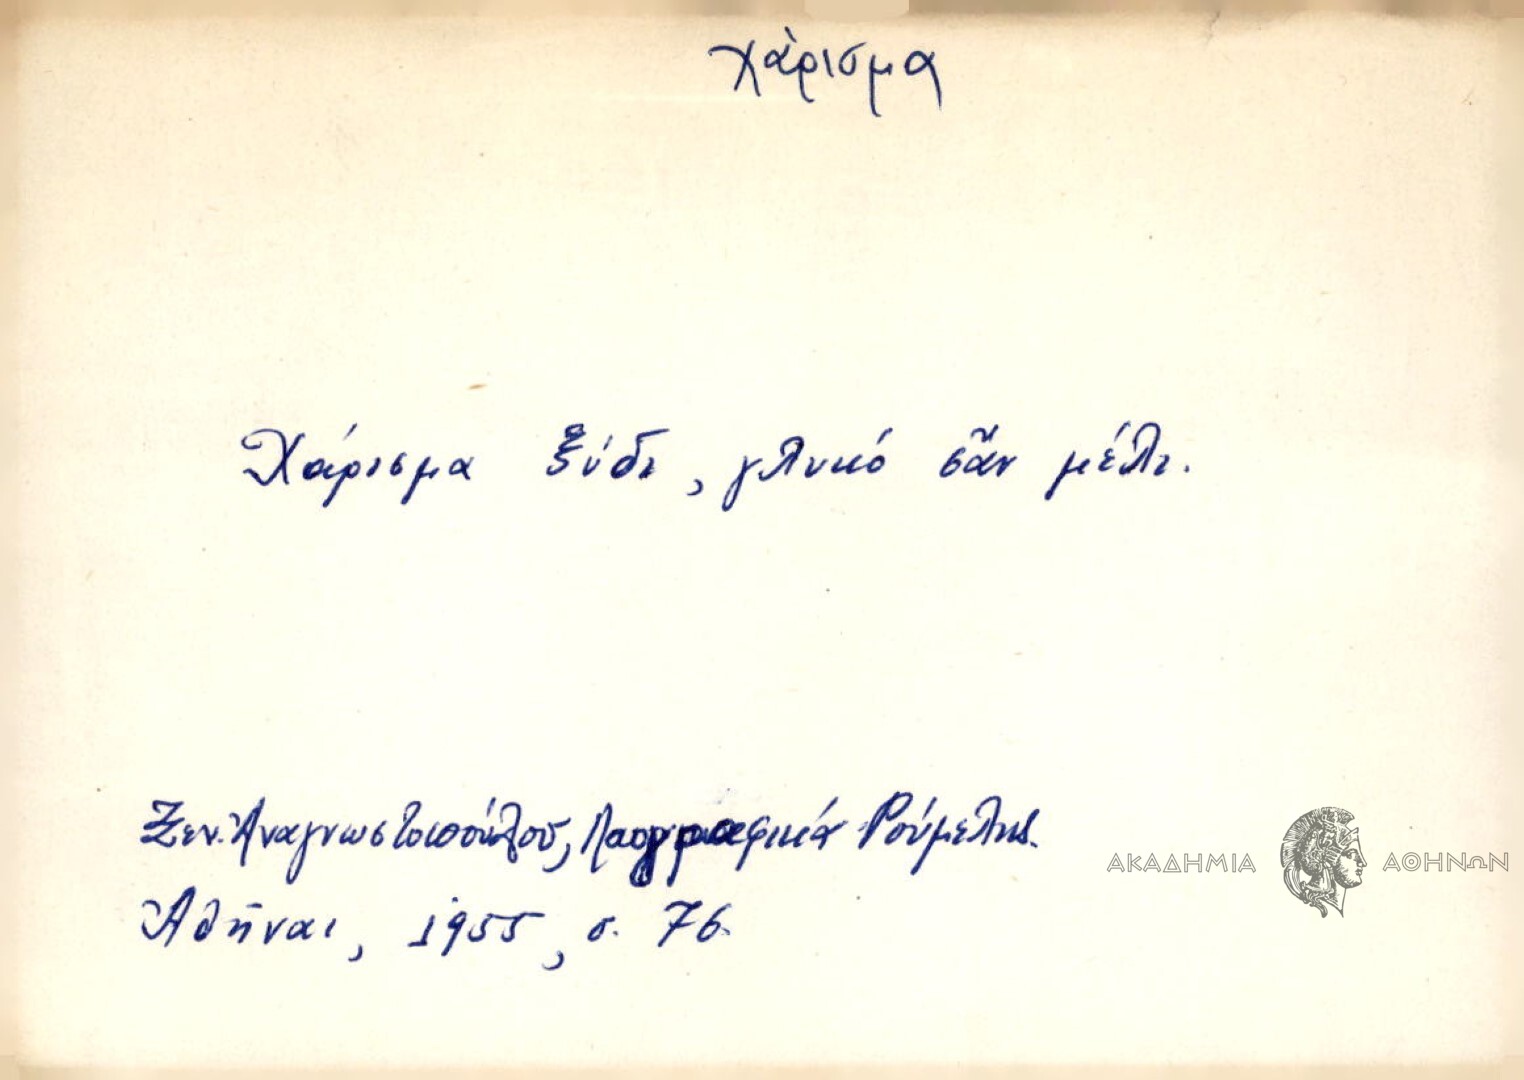 χάρισμα
Χάρισμα ξύδι, γλυκό σὰν μέλι.
Ξεν. Ἀναγνωστοπούλου, Λαογραφικά Ρούμελης.
ΑΚΑΔΗΜΙΑ ΑΘΗΝΩΝ
Ἀθῆναι, 1955, σ. 76.